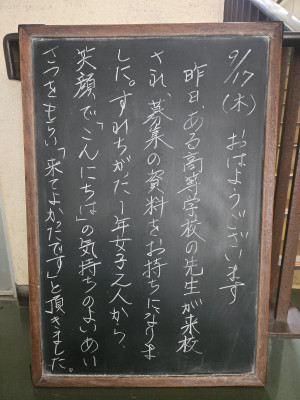 9/17(木) おはようございます
昨日、ある高等学校の先生が来校
され、募集の資料をお持ちになりま
した。すれちがた1年女子2人から、
笑顔で「こんにちは」の気持ちのよいあい
さつをもらい「来てよかたです」と頂きました。